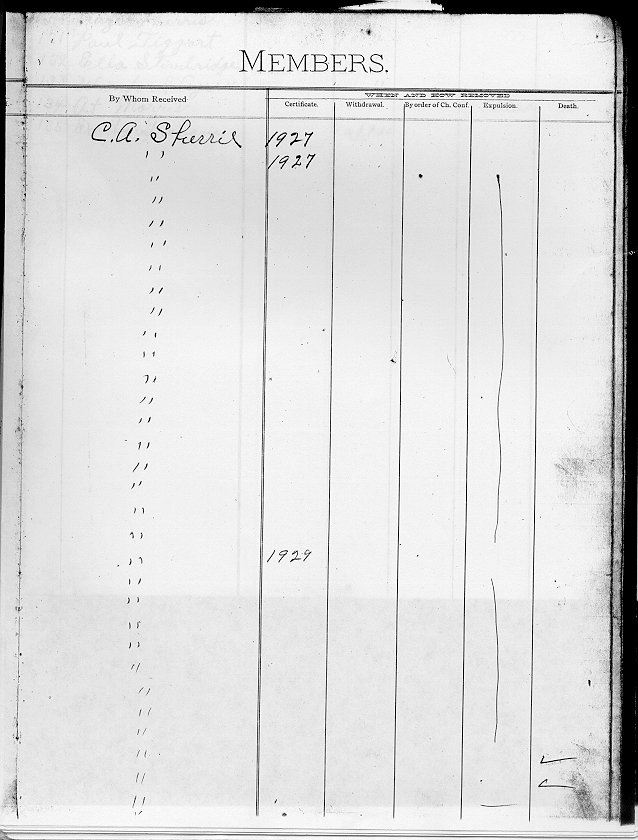 MEMBERS.
WHEN AND HOW REMOVED
By Whom Received Certificate. Withdrawal. By order of Ch. Conf. Expulsion. Death.
C.A. Sherril 1927
" 1927
"
"
"
"
"
"
"
"
"
"
"
"
"
"
"
"
"
" 1929
"
"
"
"
"
"
"
"
" ✓
" ✓
"